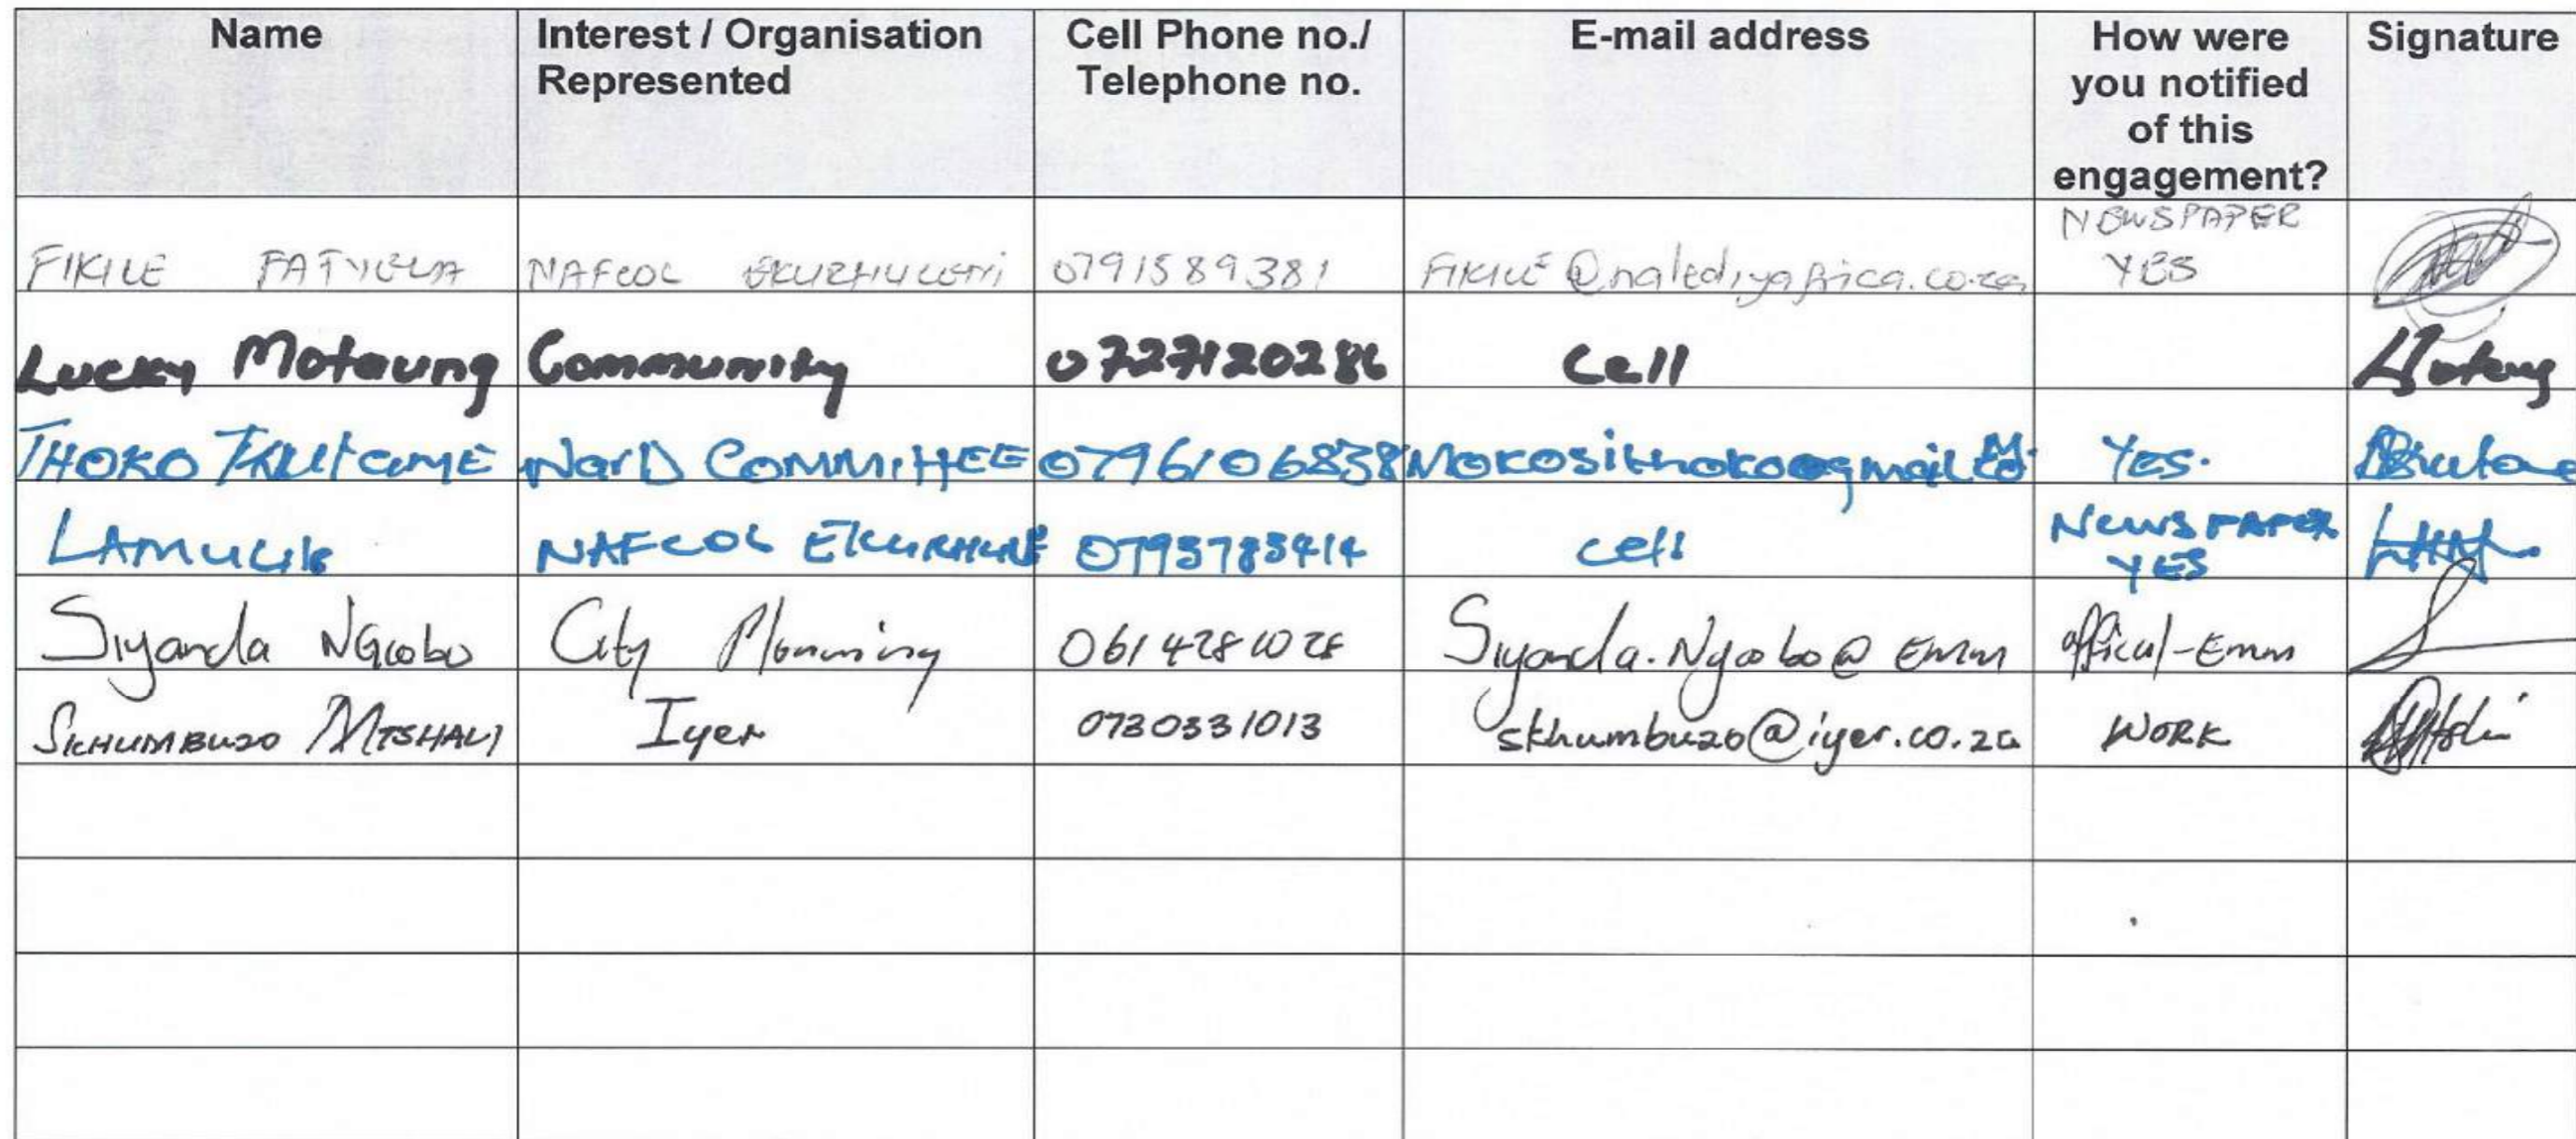 Name Interest / Organisation Represented Cell Phone no./ Telephone no. E-mail address How were you notified of this engagement? Signature
FIKILE NAFCOC 0791589381 FIKILE@nalediyafrica.co.za NEWSPAPER YES
Lucky Motaung Community 0727120286 Cell
THOKO WARD COMMITTEE 0796106838 Mokosithoko@gmail.com YES.
NAFCOC 0793783414 cell NEWSPAPER YES
Siyanda NGcobo City Planning 0614281028 Siyanda.Ngcobo@Emm offical-Emm
SKHUMBUZO MTSHALI Iyer 0730331013 skhumbuzo@iyer.co.za WORK